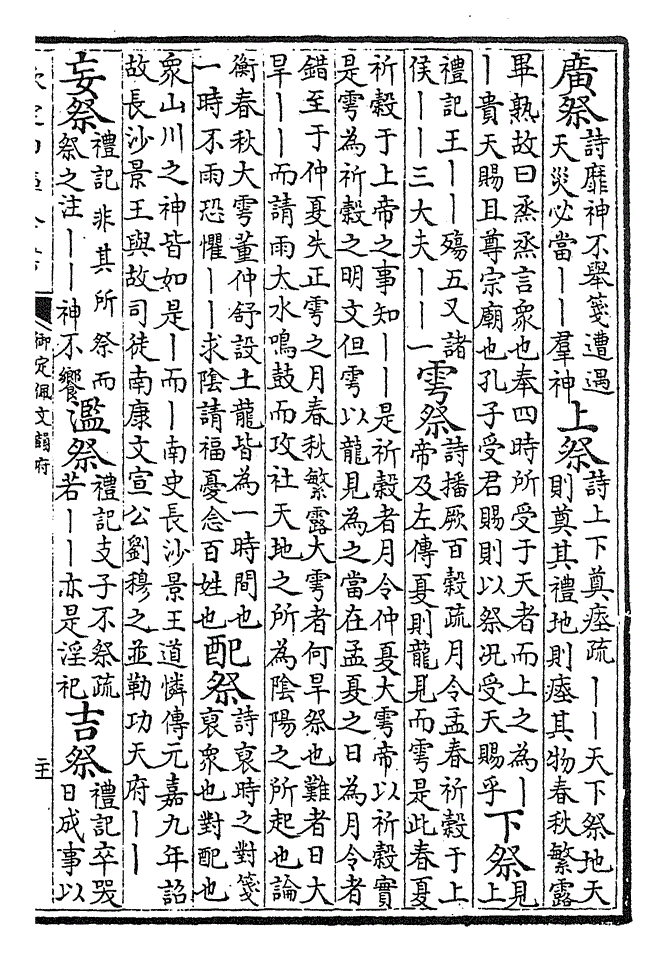 廣祭 詩靡神不舉箋遭遇
天災必當——羣神
上祭 詩上下奠瘞疏——天下祭地天
則奠其禮地則瘞其物春秋繁露
畢熟故曰烝烝言衆也奉四時所受于天者而上之為—
—貴天賜且尊宗廟也孔子受君賜則以祭況受天賜乎
下祭 見
上
禮記王——殤五又諸
侯——三大夫——一
雩祭 詩播厥百穀疏月令孟春祈穀于上
帝及左傳夏則龍見而雩是此春夏
祈穀于上帝之事知——是祈穀者月令仲夏大雩帝以祈穀實
是雩為祈穀之明文但雩以龍見為之當在孟夏之日為月令者
錯至于仲夏失正雩之月春秋繁露大雩者何旱祭也難者曰大
旱——而請雨太水鳴鼓而攻社天地之所為陰陽之所起也論
衡春秋大雩董仲舒設土龍皆為一時間也
一時不雨恐懼——求陰請福憂念百姓也
配祭 詩裒時之對箋
裒衆也對配也
衆山川之神皆如是—而—南史長沙景王道憐傳元嘉九年詔
故長沙景王與故司徒南康文宣公劉穆之並勒功天府——
妄祭 禮記非其所祭而
祭之注——神不饗
濫祭 禮記支子不祭疏
若——亦是淫祀
吉祭 禮記卒哭
日成事以
御定佩文韻府